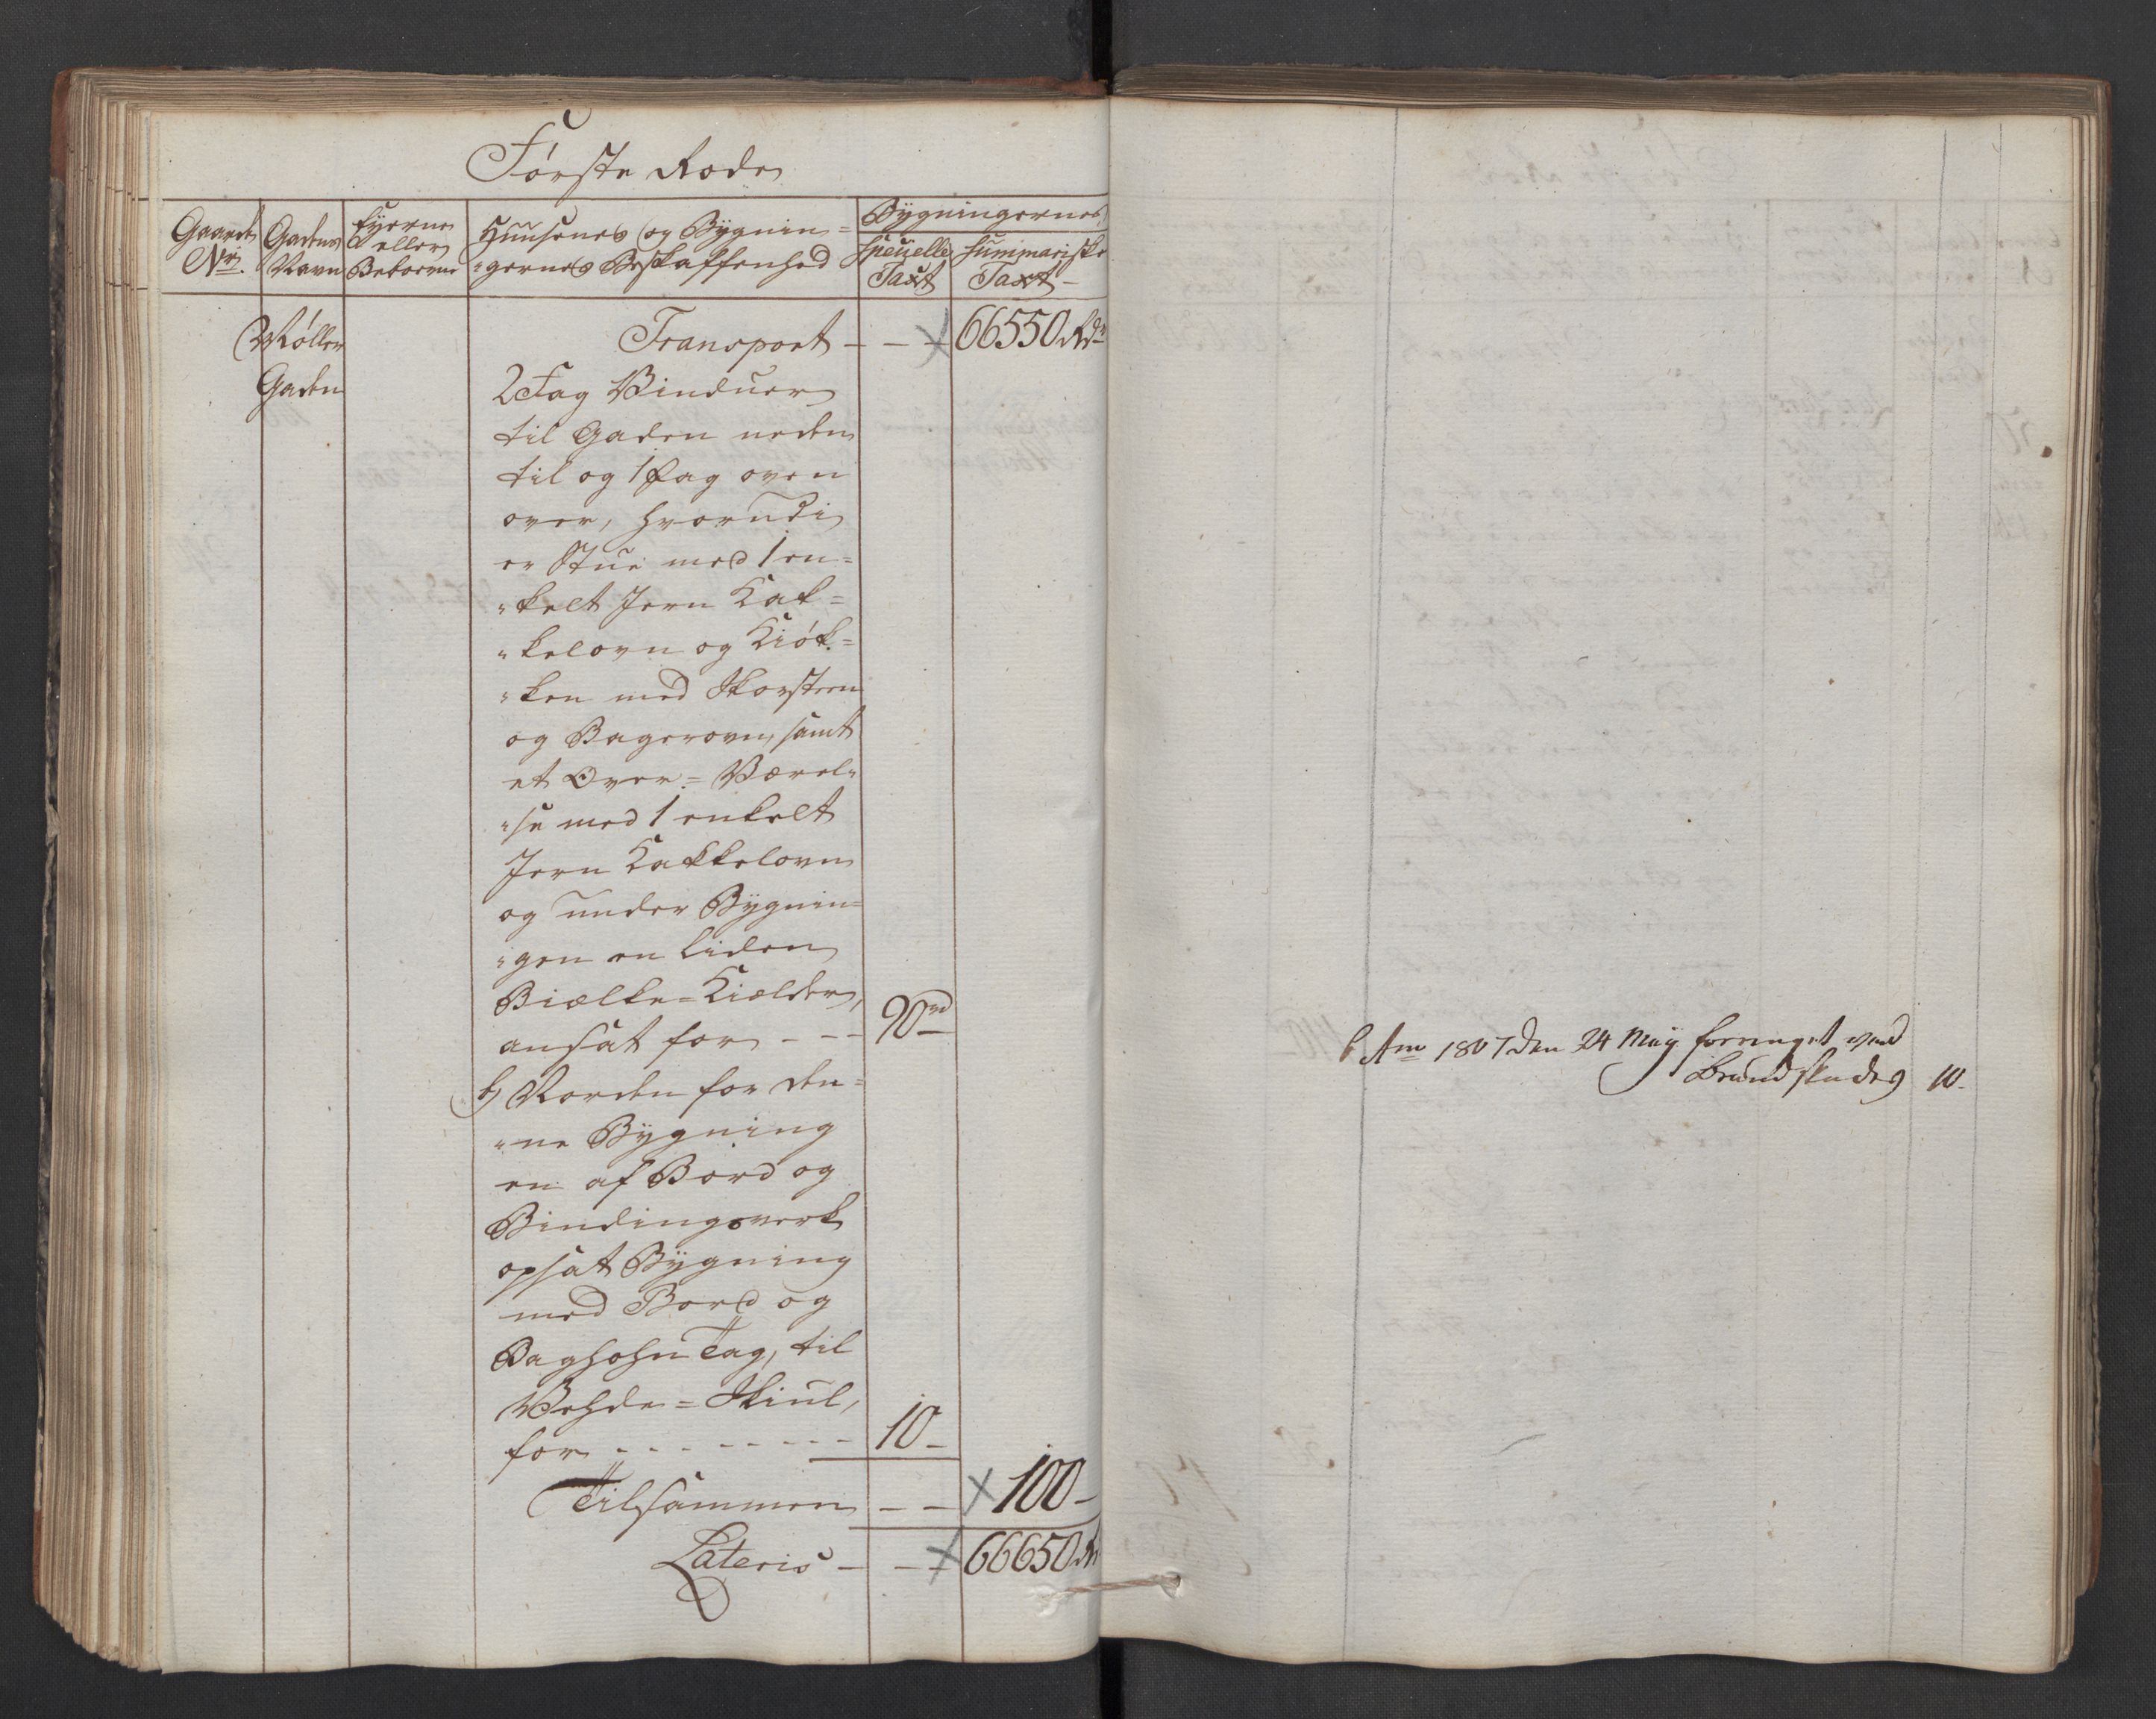 Første Rode
Gaards No. Gadens Navn Eyerne eller Beboerne Huusenes og Bygnin=
"gernes Beskaffenhed Bygningernes
Specielle Taxt Summariske Taxt
Møller Transport - - - 66550 Rdr
Gaden 2 Fag Vinduer
til Gaden neden
til og 1 Fag oven
over, hvorudi
er Stue med 1 en=
"kelt Jern Kak=
"kelovn og Kiøk=
"ken med Skorsteen
og Bagerovn, samt
et Over=Værel"
"se med 1 enkelt
Jern Kakkelovn
og under Bygnin=
"gen en liden
Biælke=Kielder,
ansat for - - - 90 rd
b) Norden for den=
"ne Bygning
en af Bord og
Bindingsverk
opsat Bygning
med Bord og
Baghohn Tag, til
Vehde=Skiul,
for - - - - - - - - 10 -
Tilsammen - - 100 -
Lateris - - - 66650 Rd
b Ao 1807 den 24 May forringet ved
Brandskade 10 -